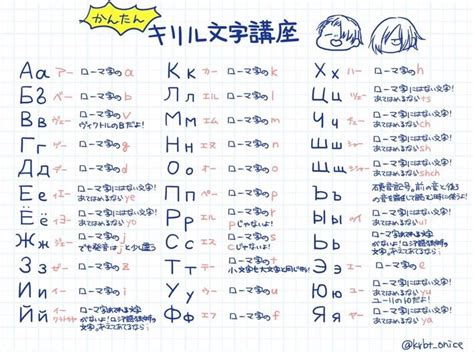 かんたん
キリル文字講座
Аа アー ローマ字のa
Бб ベー ローマ字のb
Вв ヴェー ローマ字のv
ヴィクトルのBだよ!
Гг ゲー ローマ字のg
Дд デー ローマ字のd
Ее イェー ローマ字にはない文字!
あてはめるなら ye
Ёё ヨー ローマ字にはない文字!
あてはめるなら yo
Жж ジェー ローマ字のj
でも発音はjと少し違う
Зз ゼー ローマ字のz
Ии イー ローマ字のi
Йй
Кк カー ローマ字のk
Лл エル ローマ字のl
Мм エム ローマ字のm
Нн エヌ ローマ字のn
Оо オー ローマ字のo
Пп ペー ローマ字のp
Рр エル ローマ字のr
pじゃないよ!
Сс エス ローマ字のs
Тт テー ローマ字のt
小文字も大文字と同じ形!
Уу ウー ローマ字のu
Фф エフ ローマ字のf
Хх ハー ローマ字のh
Цц ツェー ローマ字にはない文字!
あてはめるなら ts
Чч チェー ローマ字にはない文字!
あてはめるなら ch
Шш シャー ローマ字にはない文字!
あてはめるなら sh
Щщ シシャー ローマ字にはない文字!
あてはめるなら shch
Ъъ 硬音記号。前の音と後ろ
の音を
Ыы ウィ ローマ字にはない文字!
あてはめるなら
Ьь
Ээ エー ローマ字のe
Юю ユー ローマ字にはない文字!
あてはめるなら yu
ユーリの10だよ!
Яя ヤー ローマ字にはない文字!
あてはめるなら ya
@krbt_onice